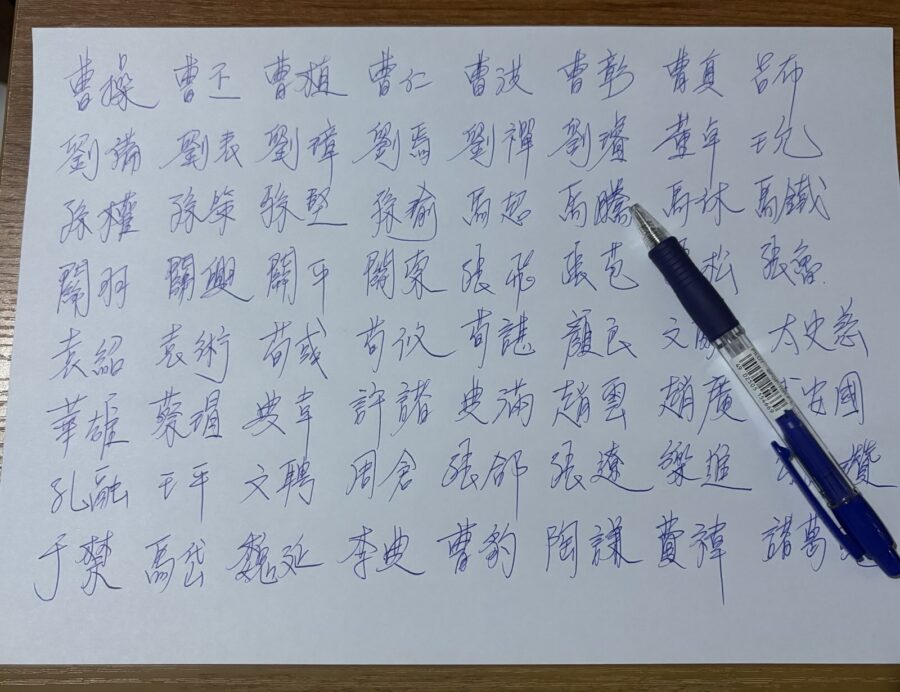 曹操 曹丕 曹植 曹仁 曹洪 曹彰 曹真 呂布
劉備 劉表 劉璋 劉焉 劉禪 劉璿 董卓 王允
孫權 孫策 孫堅 孫瑜 馬超 馬騰 馬休 馬鐵
關羽 關興 關平 關索 張飛 張苞 松 張魯
袁紹 袁術 荀彧 荀攸 荀諶 顏良 文 太史慈
華雄 蔡瑁 典韋 許褚 典滿 趙雲 趙廣 安國
孔融 王平 文聘 周倉 張郃 張遼 樂進 瓚
于禁 馬岱 魏延 李典 曹豹 陶謙 費禕 諸葛